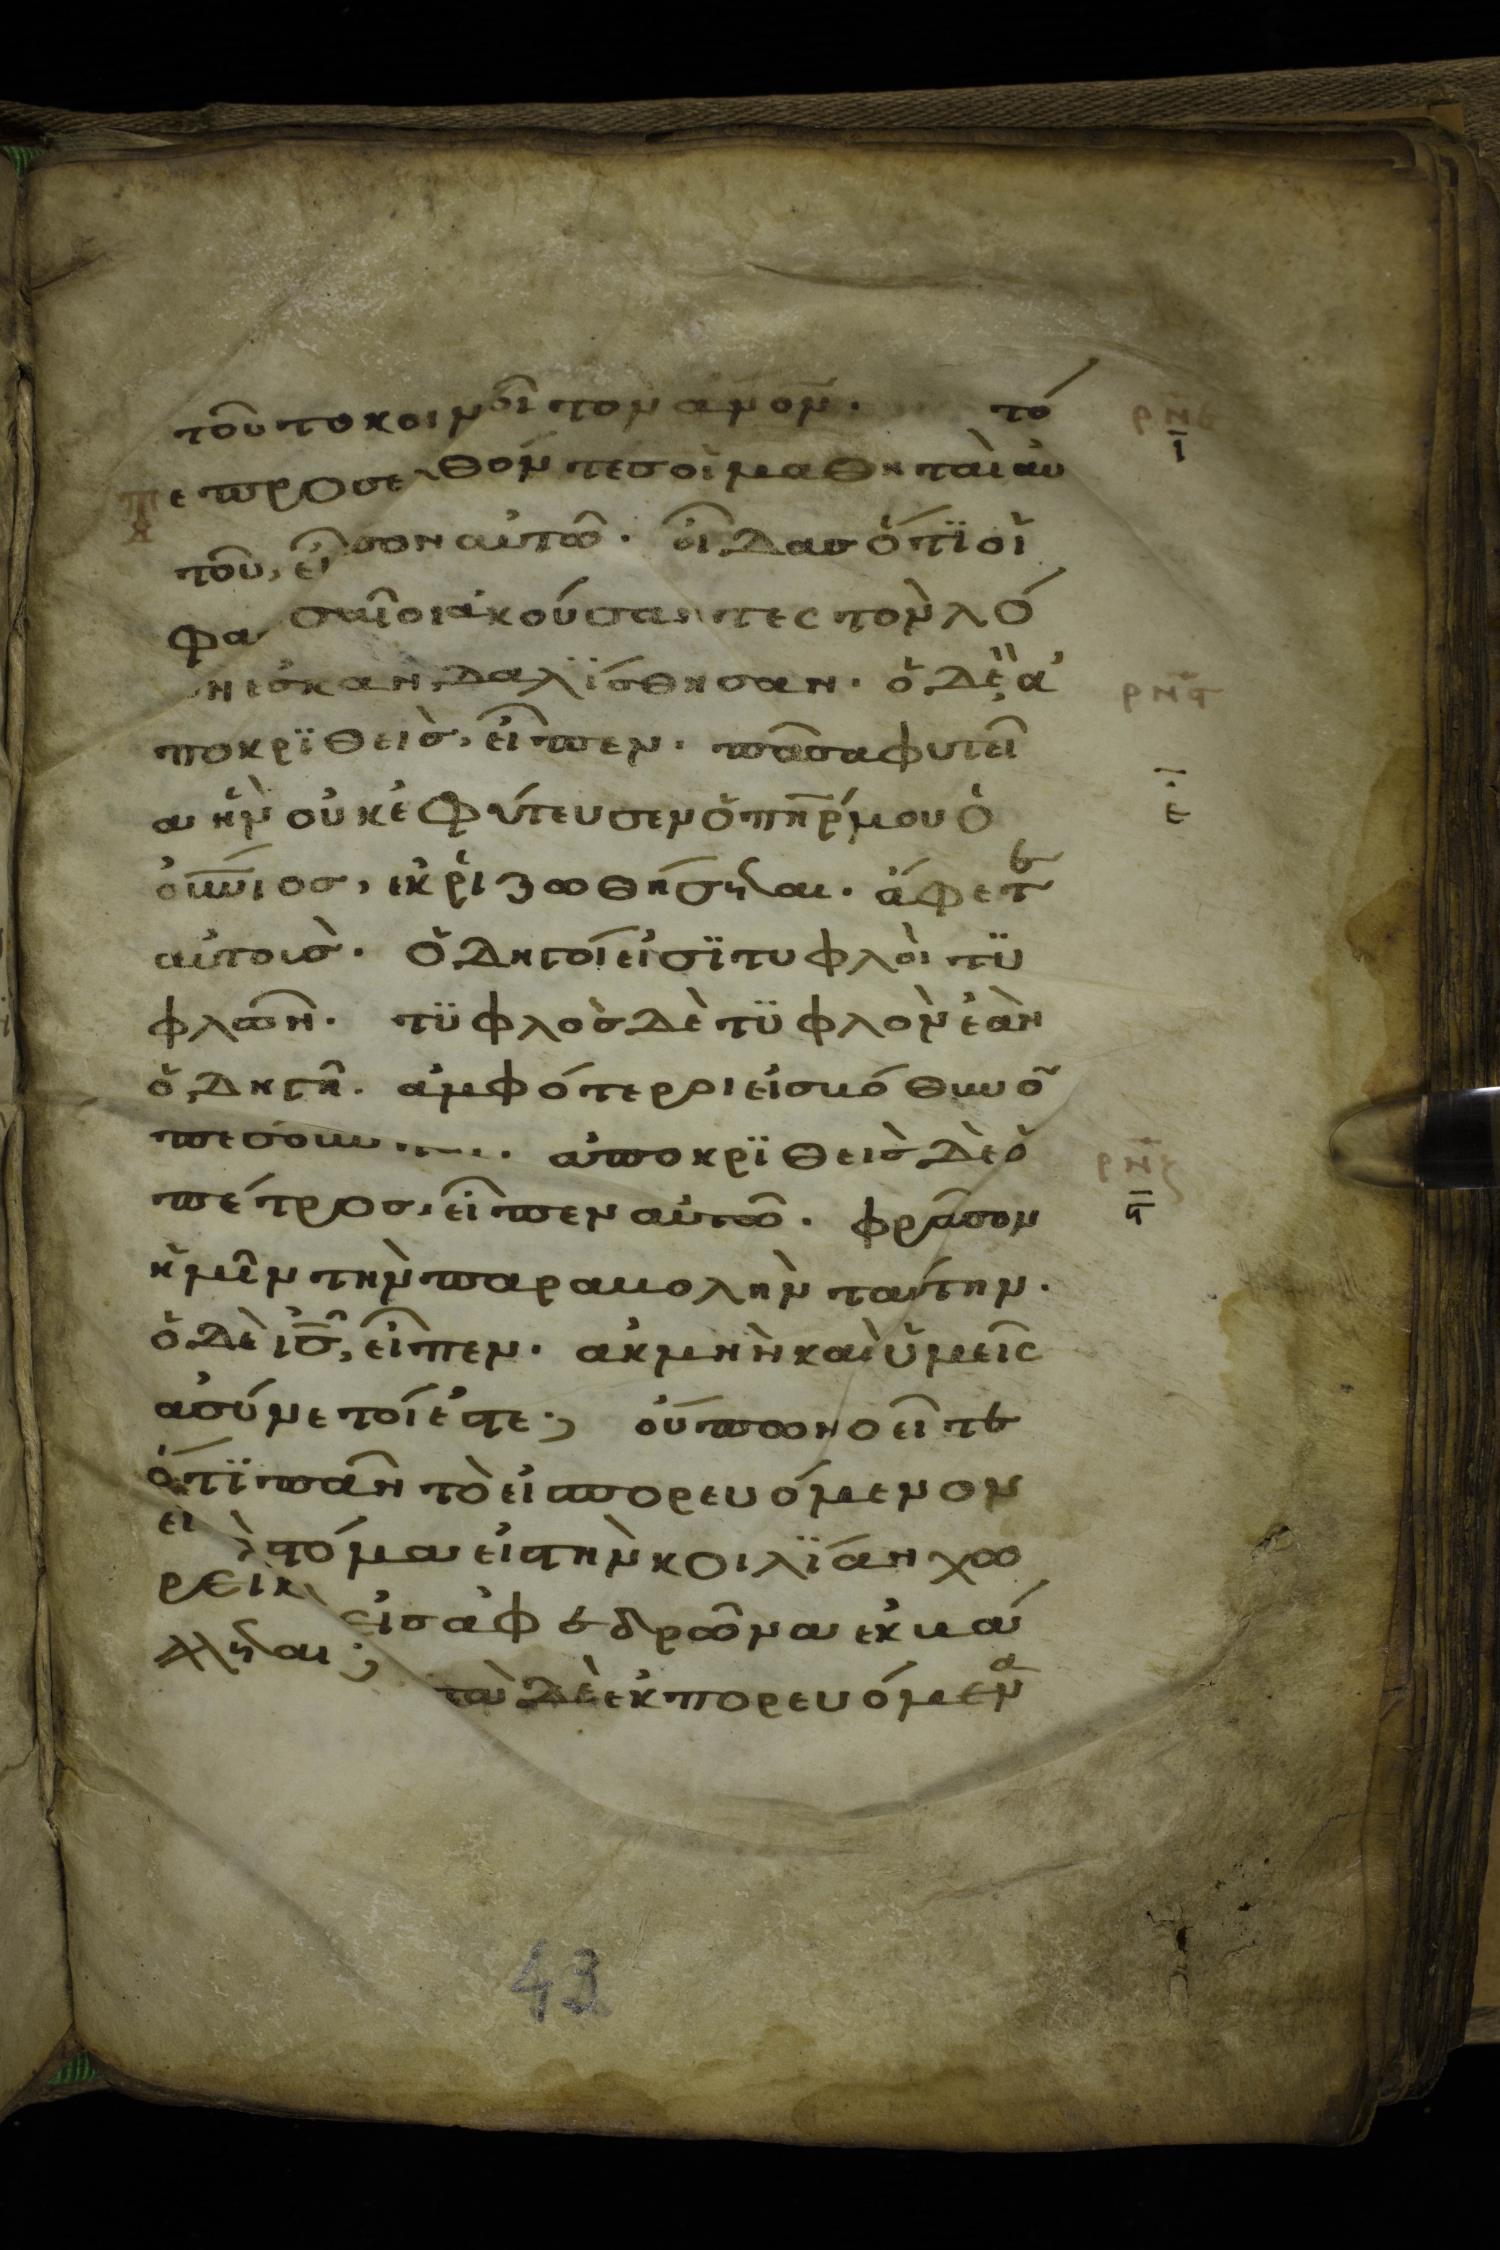 τοῦτο κοινοῖ τὸν ἀνὸν. τό
τε προσελθόντες οἱ μαθηταὶ αὐ
τοῦ, εἶπον αὐτῶ. οἶδας ὅτϊ οἱ
φαρισαῖοι ἀκούσαντες τὸν λό
γον ἐσκανδαλΐσθησαν. ὁ δὲ ἀ
ποκρϊθεὶς, εἶπεν. πᾶσα φυτεῖ
α ἣν οὐκ ἐφύτευσεν ὁ πηρ μου ὁ
οὐνιος, ἐκριζωθήσηται. ἄφετε
αὐτοὺς. ὁδηγοί εἰσϊ τυφλοὶ τϋ
φλῶν. τϋφλὸς δὲ τϋφλὸν ἐὰν
ὁδηγῆ. ἀμφότεροι εἰς βόθυνο
πεσοῦν. ἀποκρϊθεὶς δὲ ὁ
πέτρος, εἶπεν αὐτῶ. φρᾶσον
ἡμῖν τὴν παραβολὴν ταύτην.
ὁ δὲ ις, εἶπεν. ἀκμὴν καὶ ὑμεῖς
ἀσύνετοί ἐστε; οὔπω νοεῖτε
ὅτϊ πᾶν τὸ εἰσπορευόμενον
εἰς τὸ στόμα εἰς τὴν κοιλϊάν χω
ρεῖ καὶ εἰς ἀφεδρῶνα ἐκβά
λληται; τὰ δὲ ἐκπορευόμενα
ρνε
ι
ρνς
ε
ρνζ
ς
43